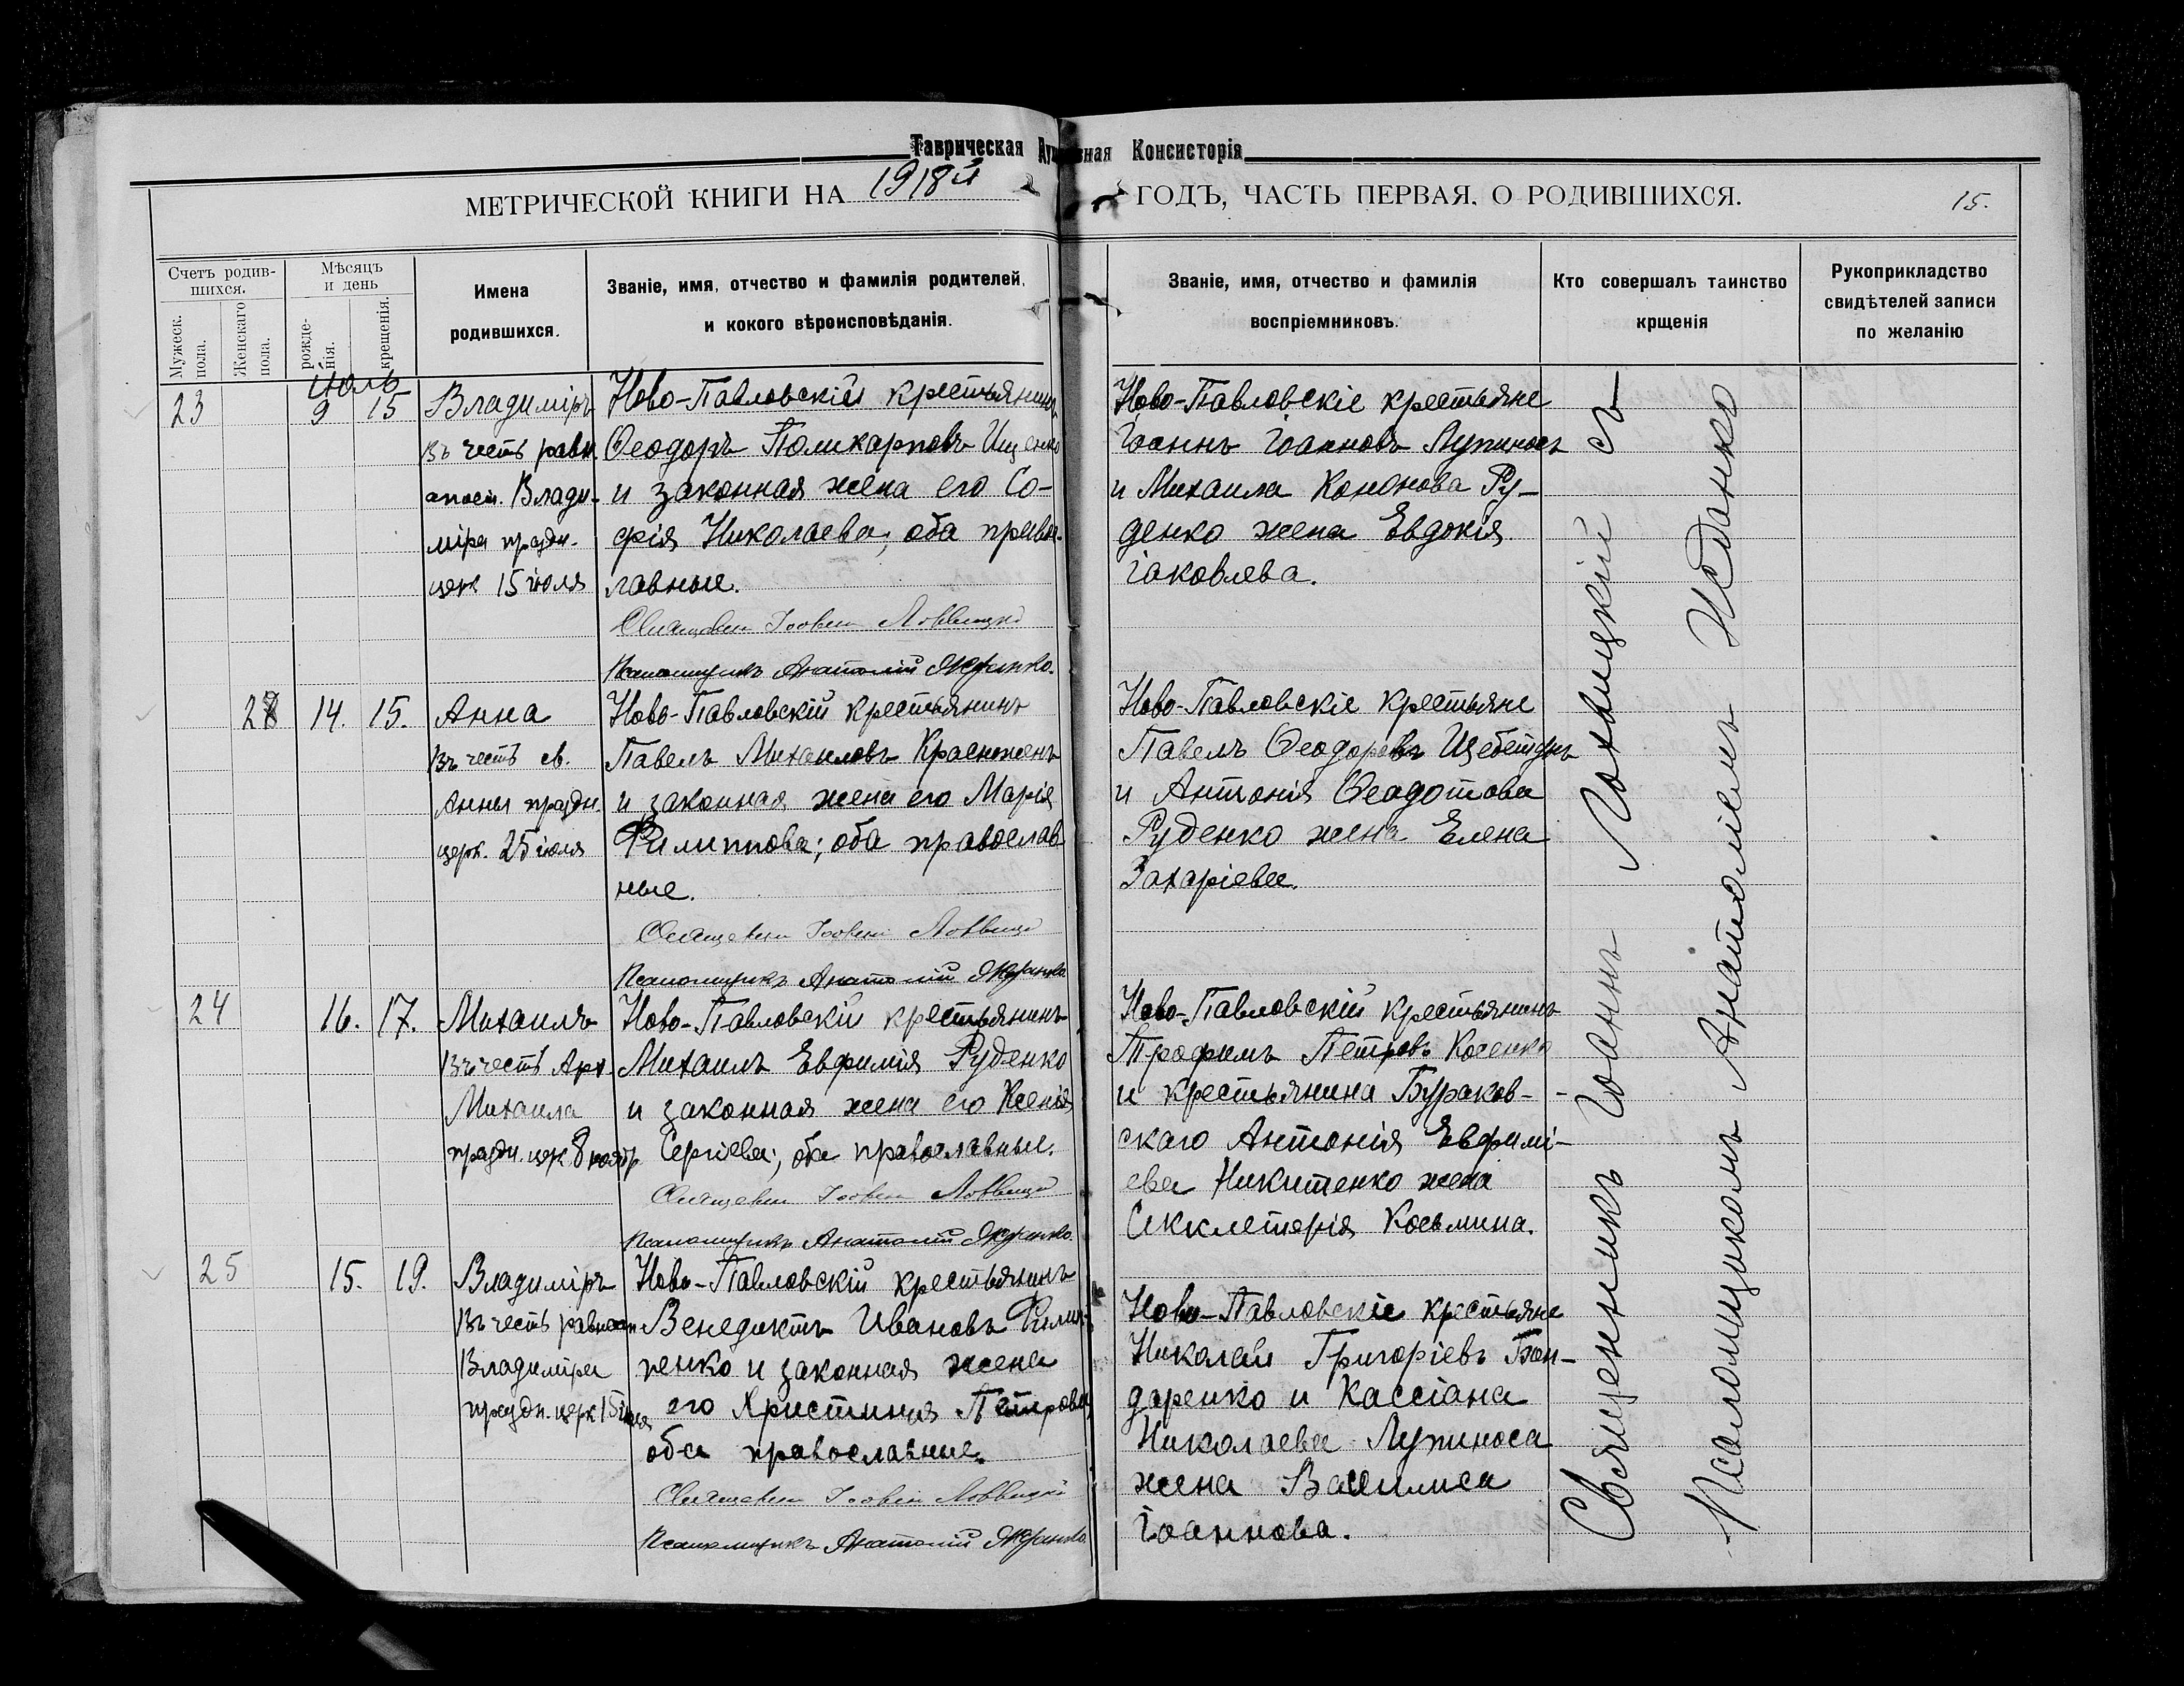 Таврическая Духовная Консисторія
МЕТРИЧЕСКОЙ КНИГИ НА 1918й ГОДЪ, ЧАСТЬ ПЕРВАЯ, О РОДИВШИХСЯ.
15.
Счетъ родив-
шихся.
Мужеск.
пола.
Женскаго
пола.
Мѣсяцъ
и день
рожде-
нія.
крещенія.
Имена
родившихся.
Званіе, имя, отчество и фамилія родителей,
и кокого вѣроисповѣданія.
Званіе, имя, отчество и фамилія
воспріемниковъ.
Кто совершалъ таинство
крщенія
Рукоприкладство
свидѣтелей записи
по желанію
Июль
23 9 15
Владиміръ
Въ честь равн.
апост. Влади-
міра праздн.
церк 15 июля
Ново-Павловскій крестьянинъ
Ѳеодоръ Поликарповъ Ищенко
и законная жена его Со-
фія Николаева; оба правос-
лавные.
Псаломщикъ Анатолій
Ново-Павловскіе крестьяне
Іоаннъ Іоанновъ Лупиносъ
и Михаила Кононова Ру-
денко жена Евдокія
Іаковлева.
14. 15.
Анна
Въ честь св.
Анны праздн.
церк. 25 іюля
Ново-Павловскій крестьянинъ
Павелъ Михаиловъ Красноженъ
и законная жена его Марія
Филиппова; оба православ
ные.
Псаломщикъ Анатолій
Ново-Павловскіе крестьяне
Павелъ Ѳеодоровъ Щебетунъ
и Антонія Ѳеодотова
Руденко жена Елена
Захаріева.
24 16. 17.
Михаилъ
Въ честь Арх.
Михаила
праздн. церк 8 ноябр
Ново-Павловскій крестьянинъ
Михаилъ Евфимія Руденко
и законная жена его Ксенія
Сергіева; оба православные.
Псаломщикъ Анатолій
Ново-Павловскій крестьянинъ
Трофимъ Петровъ Косенко
и крестьянина Бураков-
скаго Антонія Евфимі-
ева Никитенко жена
Косьмина.
25 15. 19.
Владиміръ
Въ честь равноап
Владиміра
праздн. церк 15 іюля
Ново-Павловскій крестьянинъ
Венедиктъ Ивановъ
ренко и законная жена
его Христиния Петрова,
оба православные.
Псаломщикъ Анатолій
Ново-Павловскіе крестьяне
Николай Григоріевъ Бон-
даренко и Кассіана
Николаева Лупиноса
жена Василиса
Іоаннова.
Священникъ Іоаннъ съ
Псаломщикомъ Анатоліемъ